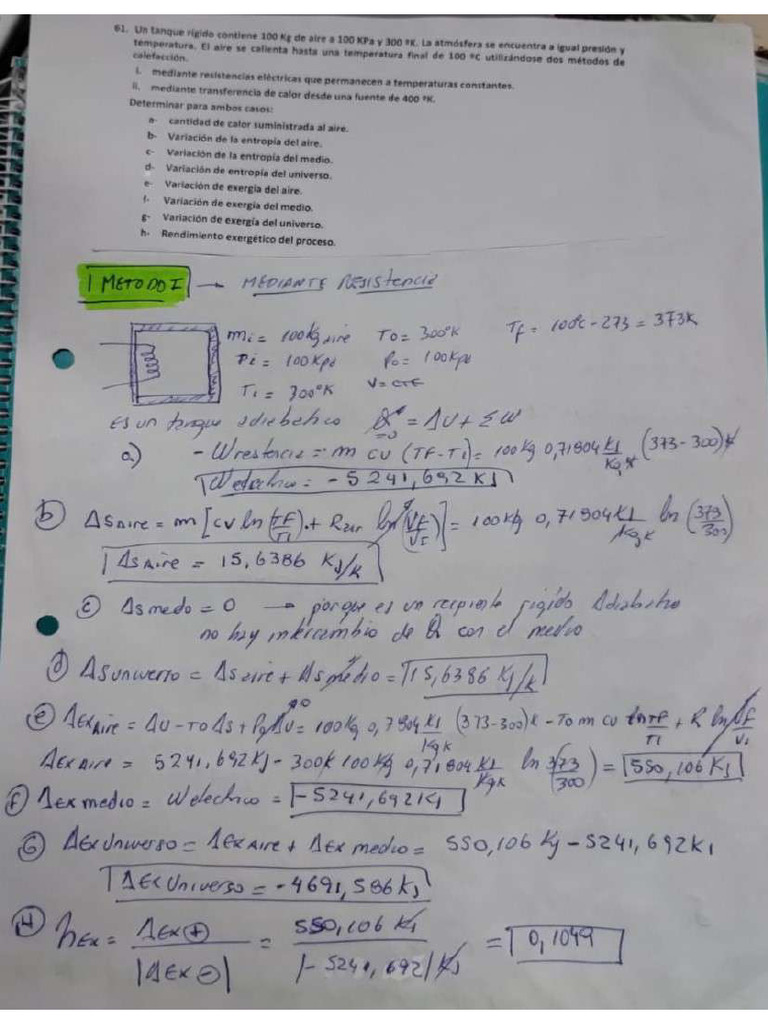 61. Un tanque rígido contiene 100 Kg de aire a 100 KPa y 300 ºK. La atmósfera se encuentra a igual presión y
temperatura. El aire se calienta hasta una temperatura final de 100 ºC utilizándose dos métodos de
calefacción.
i. mediante resistencias eléctricas que permanecen a temperaturas constantes.
ii. mediante transferencia de calor desde una fuente de 400 ºK.
Determinar para ambos casos:
a- cantidad de calor suministrada al aire.
b- Variación de la entropía del aire.
c- Variación de la entropía del medio.
d- Variación de entropía del universo.
e- Variación de exergía del aire.
f- Variación de exergía del medio.
g- Variación de exergía del universo.
h- Rendimiento exergético del proceso.
1 METODO I → MEDIANTE Resistencia
mi = 100kg aire To = 300°K Tf = 100°c - 273 = 373K
Pi = 100Kpa Po = 100Kpa
Ti = 300°K V = CTE
Es un tanque adiabatico Q = ΔU + ΣW
=0
a) - Wrestencia = m cu (TF - Ti) = 100kg 0,71804 KJ/Kg.K (373 - 300)K
Welectrico = - 5241,692 KJ
b) ΔSAire = m [cv ln (TF/Ti) + Raire ln (Vf/Vi)] = 100kg 0,71804 KJ/Kg K ln (373/300)
ΔSAire = 15,6386 KJ/K
c) Δsmedo = 0 → porque es un recipiente rigido Adiabatico
no hay intercambio de Q con el medio
d) ΔSuniverso = Δsaire + Δsmedio = 15,6386 KJ/K
e) ΔExAire = ΔU - To Δs + Po ΔU = 100Kg 0,7804 KJ/Kg K (373-300)K - To m cu ln TF/TI + R ln Vf/Vi
=0
ΔEx Aire = 5241,692KJ - 300K 100KG 0,71804 KJ/KgK ln (373/300) = 550,106 KJ
F) Δex medio = Welectrico = - 5241,692 KJ
G) ΔEx Universo = ΔEx Aire + ΔEx medio = 550,106 KJ - 5241,692KJ
ΔEx Universo = - 4691,586 KJ
H) hEx = ΔEx⊕/|ΔEx⊖| = 550,106 KJ/|- 5241,692| KJ = 0,1049